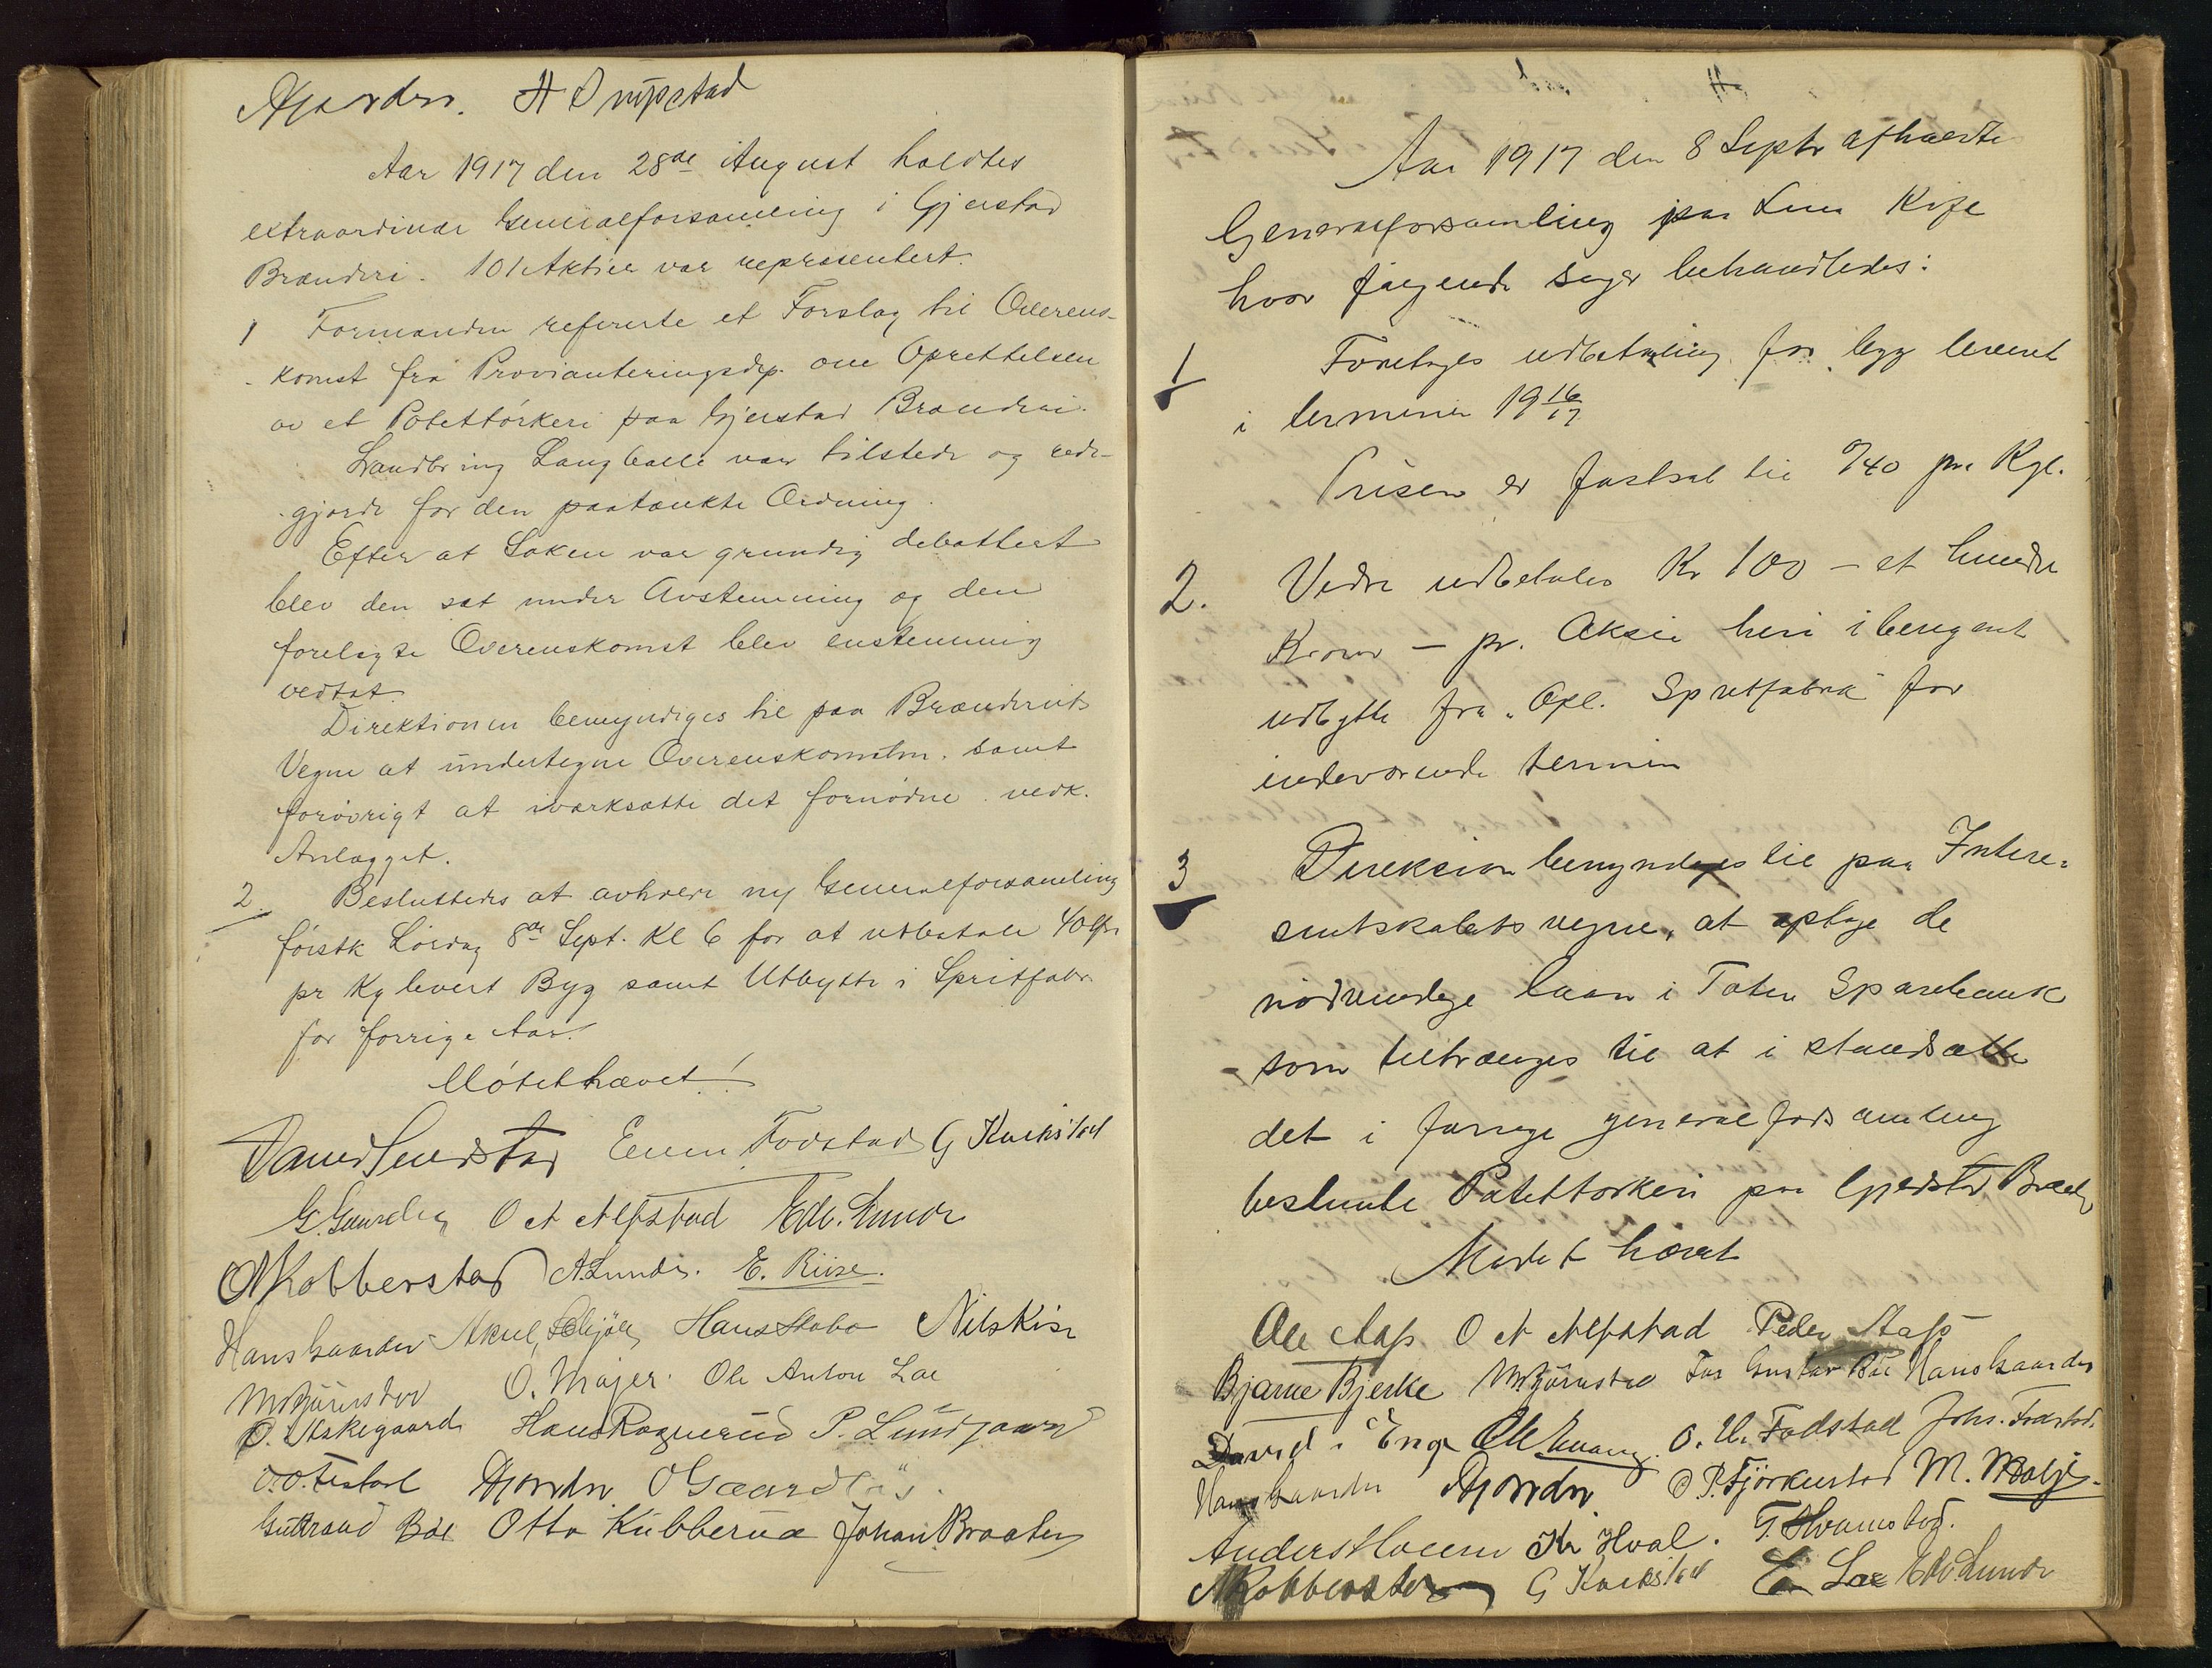 Aar 1917 den 28de August holdtes
extraordinær Generalforsamling i Gjerstad
Brænderi. 101 Aktier var representert.
1 Formanden refererte et Forslag til Overens-
komst fra Provianteringsdep. om Oprettelsen
av et Potettørkeri paa Gjerstad Brænderi.
Landbr ing Langballe var tilstede og rede-
gjorde for den paatænkte Ordning.
Efter at Saken var grundig debattert
blev den sat under Avstemning og den
forelagte Overenskomst blev enstemmig
vedtat.
Direktionen bemyndiges til paa Brænderiets
Vegne at undertegne Overenskomsten. samt
forøvrigt at iværksætte det fornødne vedk.
Anlægget.
2. Besluttedes at avholde ny Generalforsamling
førstk Lørdag 8de Sept. Kl 6 for at utbetale 40 Øre
pr Kg levert Byg samt Utbytte i Spritfabr.
for forrige Aar.
Møtet hævet!
Even Fodstad G Kvikstad
O A Alfstad Edv. Lunde
Kobberstad A. Lunde. E. Riise.
Hans Gaarder Hans Stabo Nils Kise
M Bjørnstad O. Majer. Ole Anton Lae
O. Askegaard Hans Rognerud P. Lundgaard
Guttrand Bøe Otto Kubberud Johan Braaten
Aar 1917 den 8 Septr afholdte
Generalforsamling paa Lena Kafe
hvor følgende sager behandledes:
1 Foretages udbetaling for byg leveret
i terminen 19 16/17
Prisen er fastsat til 0/40 pr. Kgl.
2. Videre udbetales Kr 100 – et hundre
Kroner – pr. Aksie heri iberegnet
udbytte fra "Opl. Spritfabrik" for
indeværende termin
3 Direksion bemyndiges til paa Intere-
sentskabets vegne, at optage de
nødvendige laan i Toten Sparebank
som tiltrænges til at i standsætte
det i forrige generalforsamling
bestemte Potettørkeri paa Gjerstad Brændr
Mødet hævet
Ole Aas O A Alfstad Peder Aas
Bjarne Bjerke M Bjørnstad for Gustav Bøe Hans Gaarder
David i Enge O. H. Fodstad Johs. Fodstad.
Hans Gaarder O. P. Fjørkenstad M.
Anders Kr Hval. T. Hvamstad.
Kobberstad G Kvikstad E Lae Edv Lunde